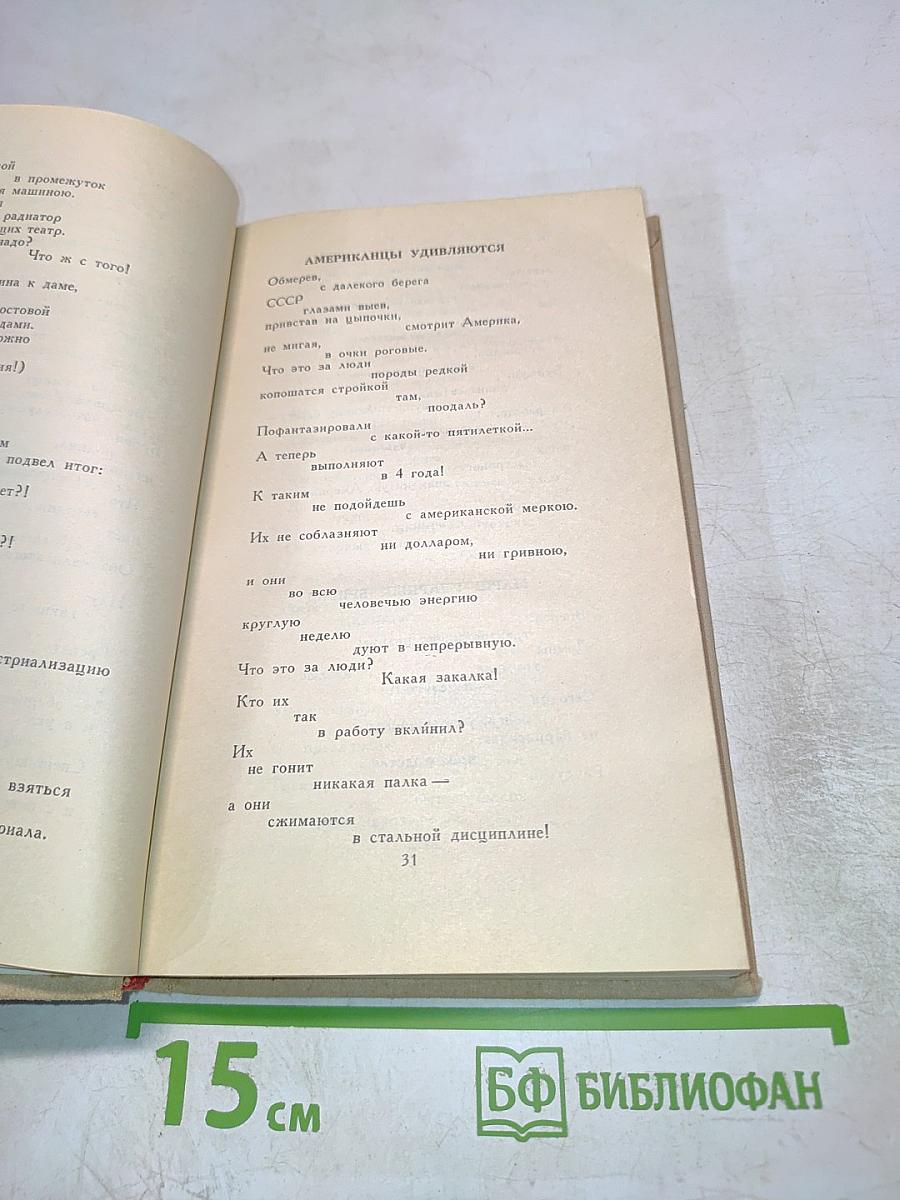 в промежуток
машиною.
радиатор
театр.
Что ж с того!
к даме,
подвел итог:
взяться
АМЕРИКАНЦЫ УДИВЛЯЮТСЯ
Обмерев,
с далекого берега
СССР
глазами выев,
привстав на цыпочки,
смотрит Америка,
не мигая,
в очки роговые.
Что это за люди
породы редкой
копошатся стройкой
там,
поодаль?
Пофантазировали
с какой-то пятилеткой...
А теперь
выполняют
в 4 года!
К таким
не подойдешь
с американской меркою.
Их не соблазняют
ни долларом,
ни гривною,
и они
во всю
человечью энергию
круглую
неделю
дуют в непрерывную.
Что это за люди?
Какая закалка!
Кто их
так
в работу вкли́нил?
Их
не гонит
никакая палка —
а они
сжимаются
в стальной дисциплине!
31
15 см
БФ БИБЛИОФАН